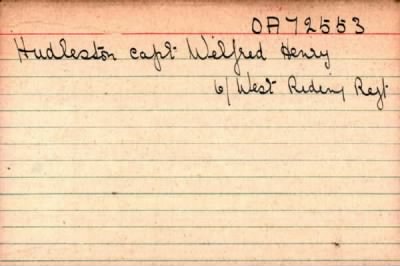 OA72553
Hudleston Capt Wilfred Henry
6/West Riding Regt